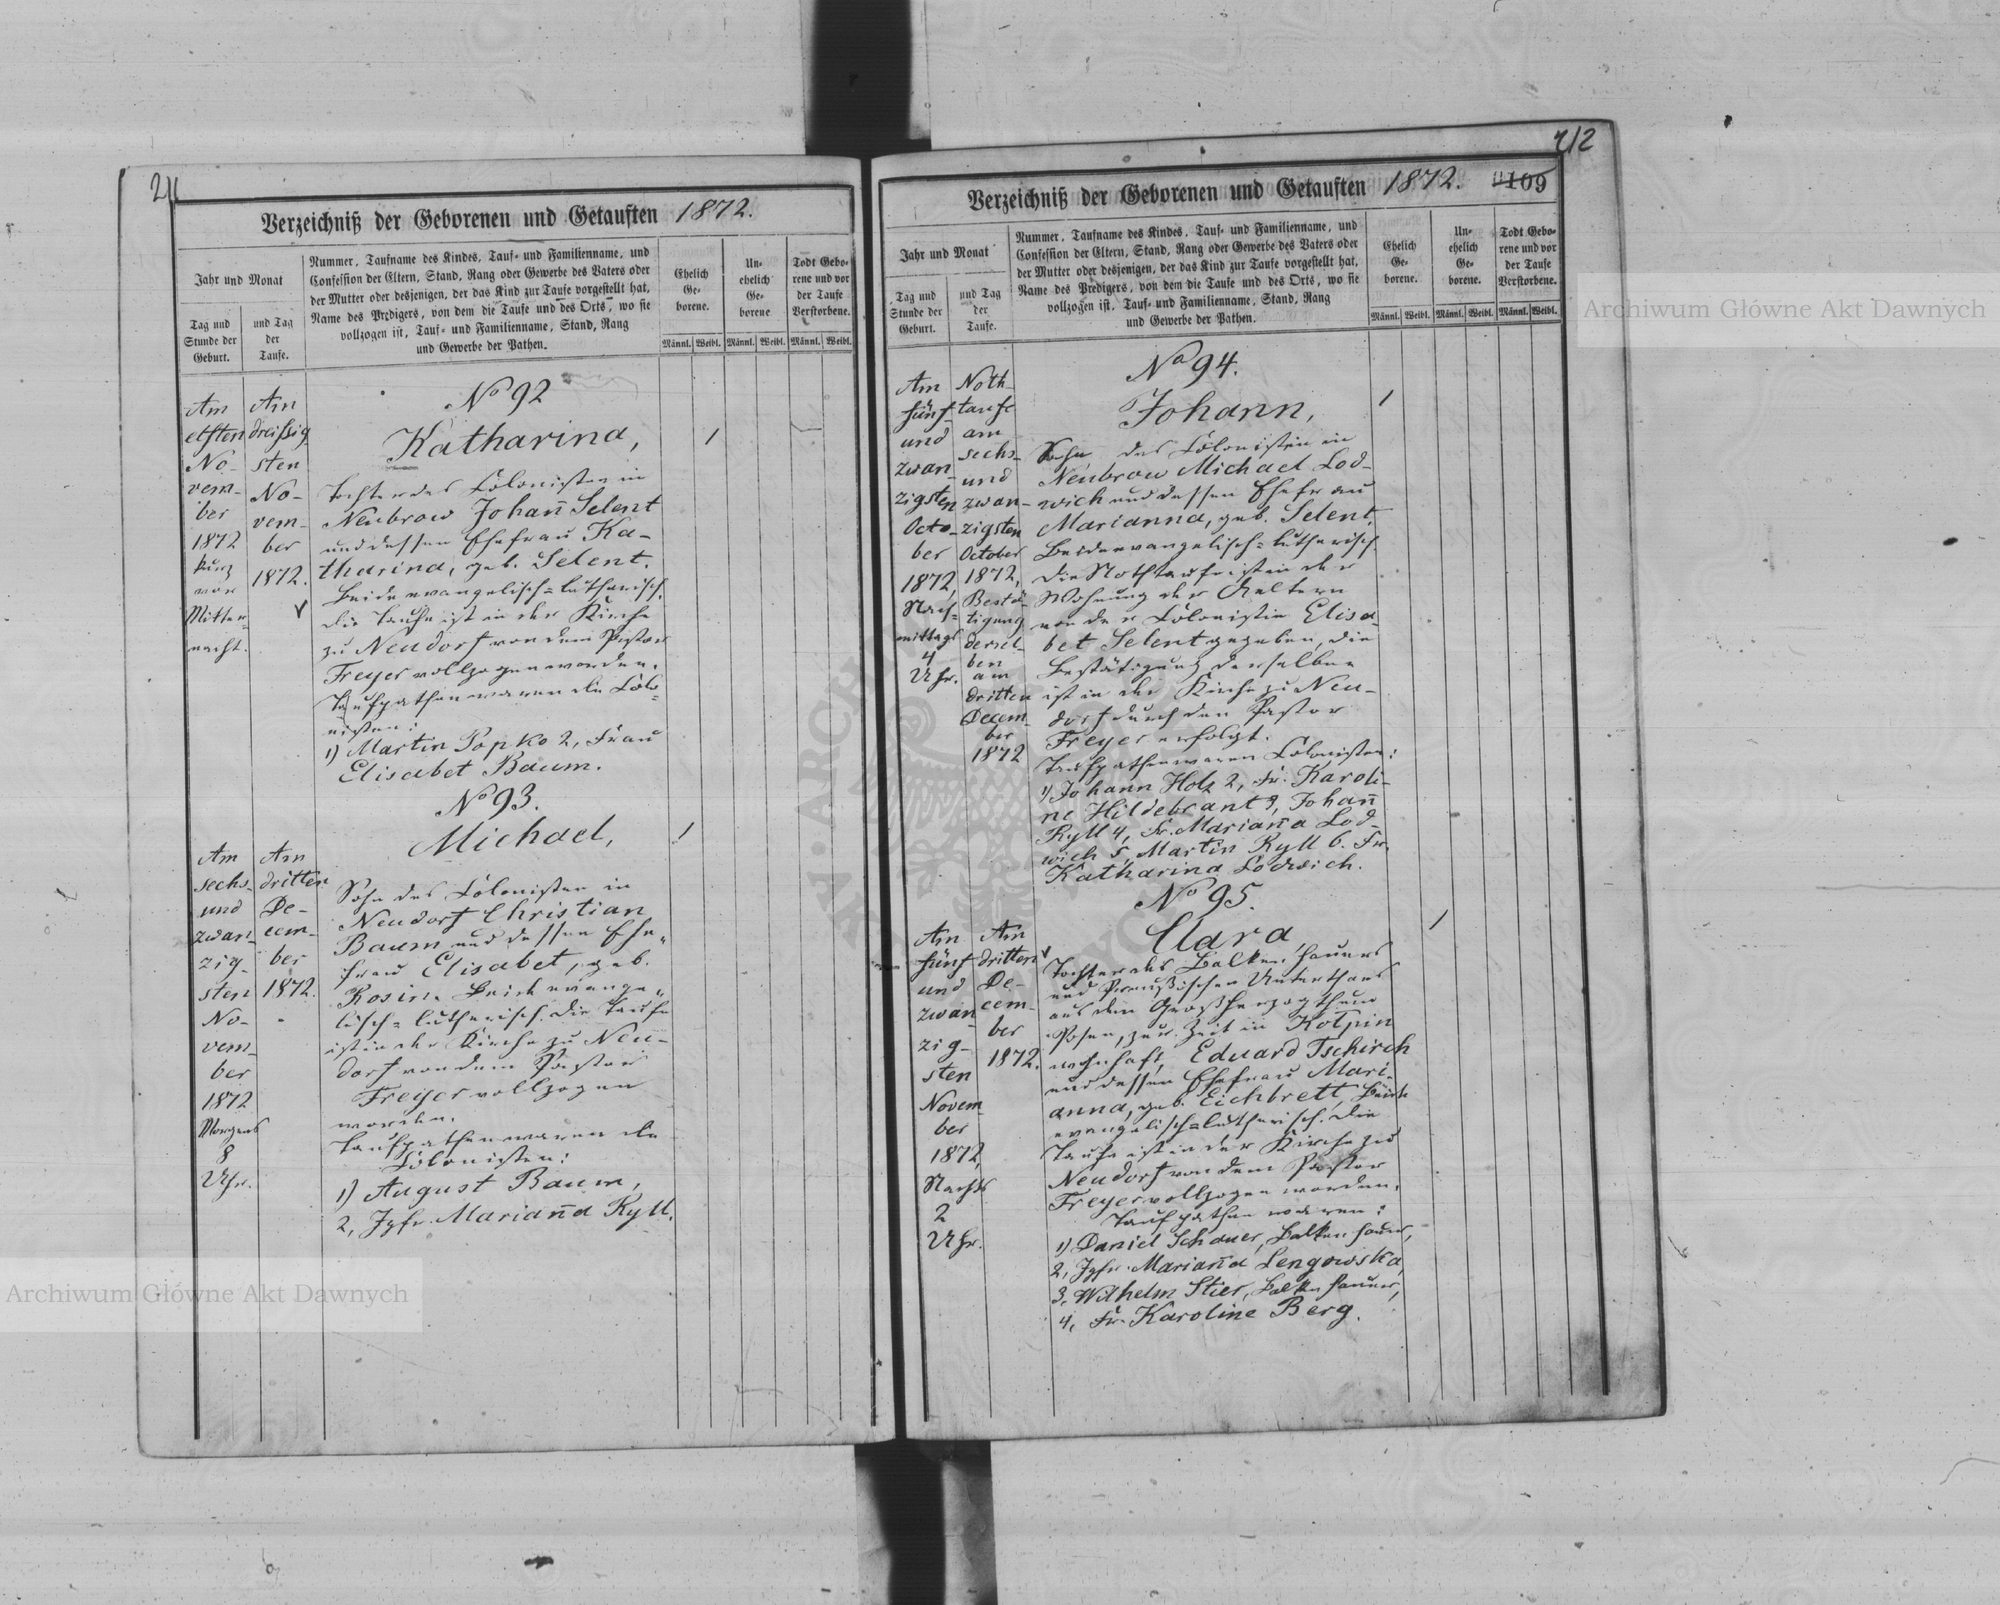 211
Verzeichniß der Geborenen und Getauften 1872.
Jahr und Monat
Tag und
Stunde der
Geburt.
und Tag
der
Taufe.
Nummer, Taufname des Kindes, Tauf- und Familienname, und
Confession der Eltern, Stand, Rang oder Gewerbe des Vaters oder
der Mutter oder desjenigen, der das Kind zur Taufe vorgestellt hat,
Name des Predigers, von dem die Taufe und des Orts, wo sie
vollzogen ist, Tauf- und Familienname, Stand, Rang
und Gewerbe der Pathen.
Ehelich
Ge-
borene.
Un-
ehelich
Ge-
borene
Todt Gebo-
rene und vor
der Taufe
Verstorbene.
Männl. Weibl. Männl. Weibl. Männl. Weibl.
Am
elften
No-
vem-
ber
1872
kurz
vor
Mitter-
nacht.
Am
dreißig
sten
No-
vem-
ber
1872.
No 92
Katharina,
Tochter des Colonisten in
Neubrow Johañ Selent
und dessen Ehefrau Ka-
tharina, geb. Selent.
Beide evangelisch=lutherisch.
Die Taufe ist in der Kirche
zu Neudorf von dem Pastor
Freyer vollzogen worden.
Taufpathen waren die Colo-
nisten:
1) Martin Popko 2, Frau
Elisabet Baum.
1
Am
sechs-
und
zwan-
zig-
sten
No-
vem-
ber
1872
Morgens
8
Uhr.
Am
dritten
De-
cem-
ber
1872.
No 93.
Michael,
Sohn des Colonisten in
Neudorf Christian
Baum und dessen Ehe-
frau Elisabet, geb.
Rosin. Beide evange-
lisch=lutherisch. Die Taufe
ist in der Kirche zu Neu-
dorf von dem Pastor
Freyer vollzogen
worden.
Taufpathen waren die
Colonisten:
1) August Baum,
2, Jgfr. Mariañа Ryll.
1
212
Verzeichniß der Geborenen und Getauften 1872.
109
Jahr und Monat
Tag und
Stunde der
Geburt.
und Tag
der
Taufe.
Nummer, Taufname des Kindes, Tauf- und Familienname, und
Confession der Eltern, Stand, Rang oder Gewerbe des Vaters oder
der Mutter oder desjenigen, der das Kind zur Taufe vorgestellt hat,
Name des Predigers, von dem die Taufe und des Orts, wo sie
vollzogen ist, Tauf- und Familienname, Stand, Rang
und Gewerbe der Pathen.
Ehelich
Ge-
borene.
Un-
ehelich
Ge-
borene.
Todt Gebo-
rene und vor
der Taufe
Verstorbene.
Männl. Weibl. Männl. Weibl. Männl. Weibl.
Am
fünf-
und
zwan-
zigsten
Octo-
ber
1872,
Nach-
mittags
4
Uhr.
Noth-
taufe
am
sechs-
und
zwan-
zigsten
October
1872,
Bestä-
tigung
dersel-
ben
am
dritten
Decem-
ber
1872
No 94.
Johann,
Sohn des Colonisten in
Neubrow Michael Lod-
wich und dessen Ehefrau
Marianna, geb. Selent.
Beide evangelisch=lutherisch.
Die Nothtaufe ist in der
Wohnung der Aeltern
von der Colonistin Elisa-
bet Selent gegeben, die
Bestätigung derselben
ist in der Kirche zu Neu-
dorf durch den Pastor
Freyer erfolgt.
Taufpathen waren Colonisten:
1) Johann Holz 2, Fr. Karoli-
ne Hildebrant 3, Johañ
Ryll 4, Fr. Mariaña Lod-
wich 5, Martin Ryll 6. Fr.
Katharina Lodwich.
1
Am
fünf
und
zwan
zig-
sten
Novem-
ber
1872,
Nachts
2
Uhr.
Am
dritten
De-
cem-
ber
1872.
No 95.
Clara
Tochter des Balkenhauers
und Preußischen Unterthans
aus dem Großherzogthum
Posen, zur Zeit in Kolpin
wohnhaft, Eduard Tschirch
und dessen Ehefrau Mari-
anna, geb. Eichbrett, Beide
evangelisch=lutherisch. Die
Taufe ist in der Kirche zu
Neudorf von dem Pastor
Freyer vollzogen worden.
Taufpathen waren:
1) Daniel Schauer, Balkenhauer,
2, Jgfr. Mariaña Lengowska,
3, Wilhelm Stier, Balkenhauer,
4, Fr. Karoline Berg.
1
Archiwum Główne Akt Dawnych
Archiwum Główne Akt Dawnych